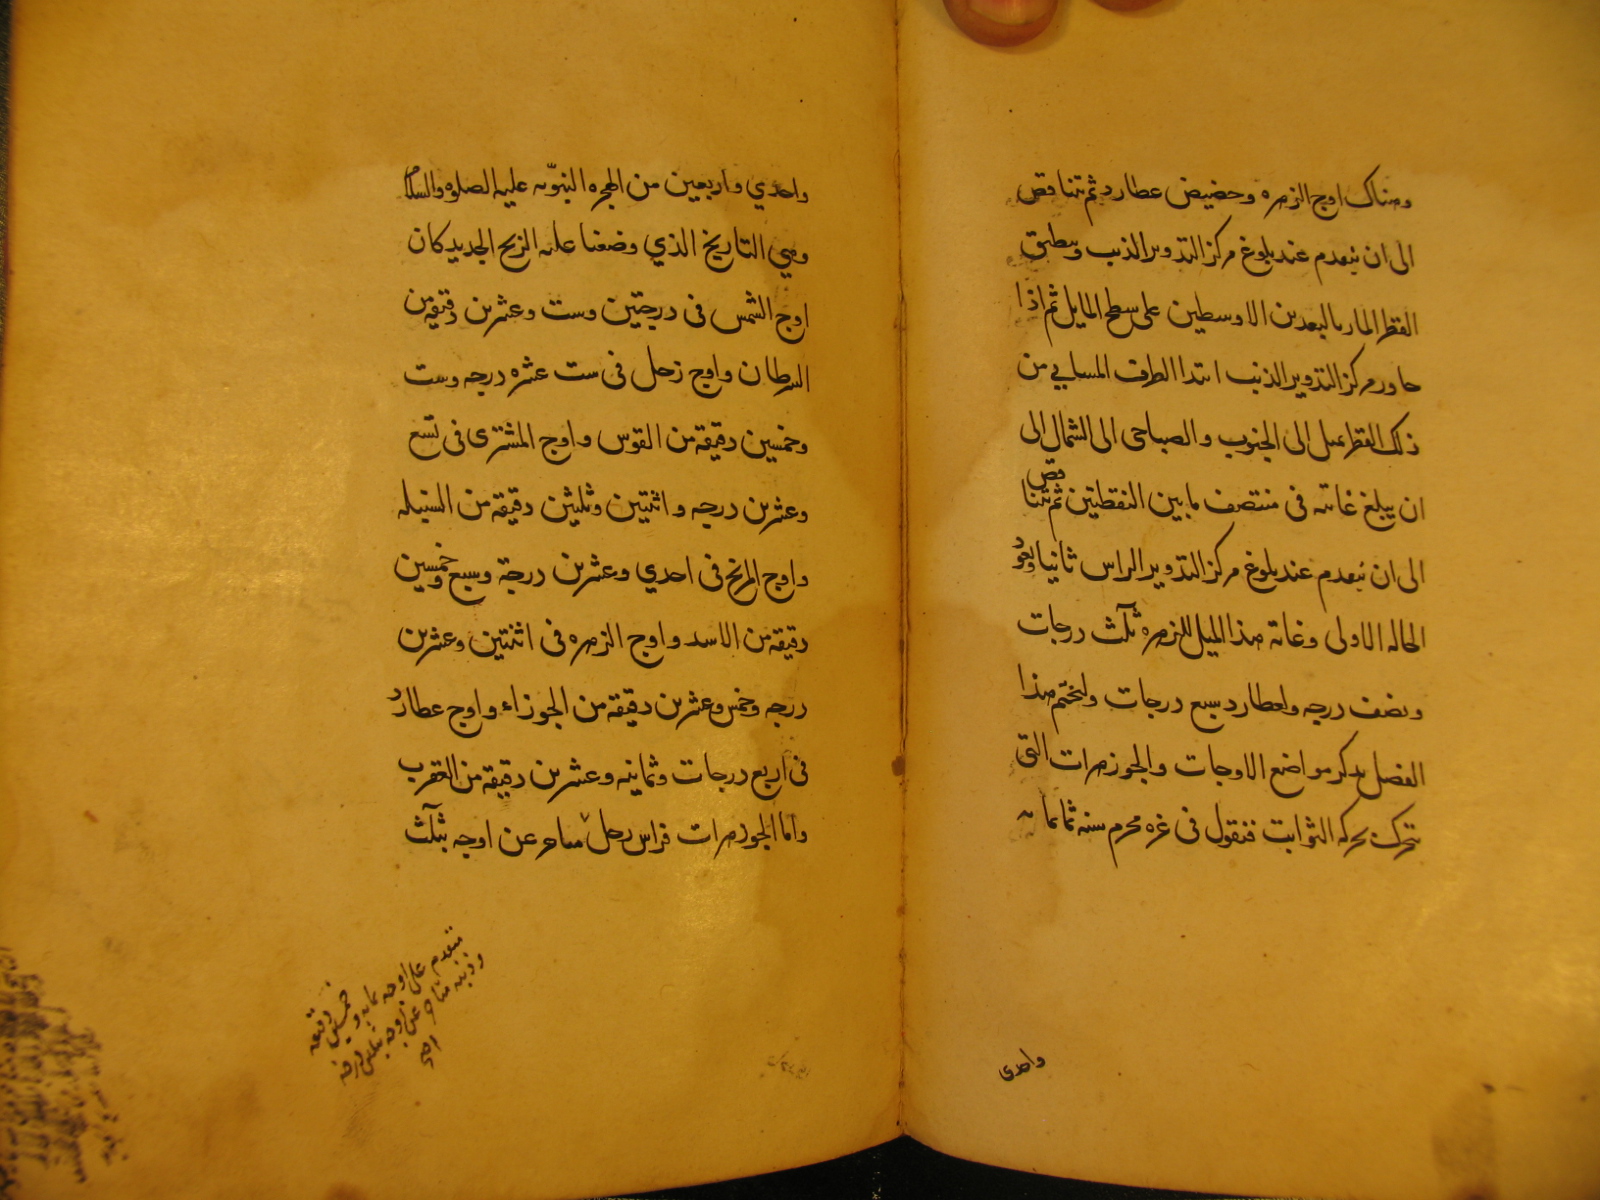 وهناك اوج الزهره وحضيض عطارد ثم تتناقص
الى ان ينعدم عند بلوغ مركز التدوير الذنب وينطبق
القطر المار بالبعدين الاوسطين على سطح المايل ثم اذا
جاوز مركز التدوير الذنب ابتدا الطرف المسايي من
ذلك القطر يميل الى الجنوب والصباحى الى الشمال الى
ان يبلغ غايته فى منتصف ما بين النقطتين ثم تتناقص
الى ان ينعدم عند بلوغ مركز التدوير الراس ثانيا ويعود
الحاله الاولى وغاية هذا الميل للزهره ثلث درجات
ونصف درجه ولعطارد سبع درجات ولنختم هذا
الفصل بذكر مواضع الاوجات والجوزهرات التى
تتحرك بحركه الثوابت فنقول فى غره محرم سنه ثمانمايه
واحدى
واحدي واربعين من الهجره النبويه عليه الصلوه والسلام
وهي التاريخ الذي وضعنا عليه الزيج الجديد كان
اوج الشمس فى درجتين وست وعشرين دقيقه من
السرطان واوج زحل فى ست عشره درجه وست
وخمسين دقيقه من القوس واوج المشترى فى تسع
وعشرين درجه واثنتين وثلثين دقيقه من السنبله
واوج المريخ فى احدي وعشرين درجة وسبع وخمسين
دقيقه من الاسد واوج الزهره فى اثنتين وعشرين
درجه وخمس وعشرين دقيقه من الجوزاء واوج عطارد
فى اربع درجات وثمانيه وعشرين دقيقه من العقرب
واما الجوزهرات فراس زحل متاخر عن اوجه بثلث
متقدم على اوجه بمايه و
خمسين دقيقه
وذنبه متاخر عن اوجه بثلثين درجه